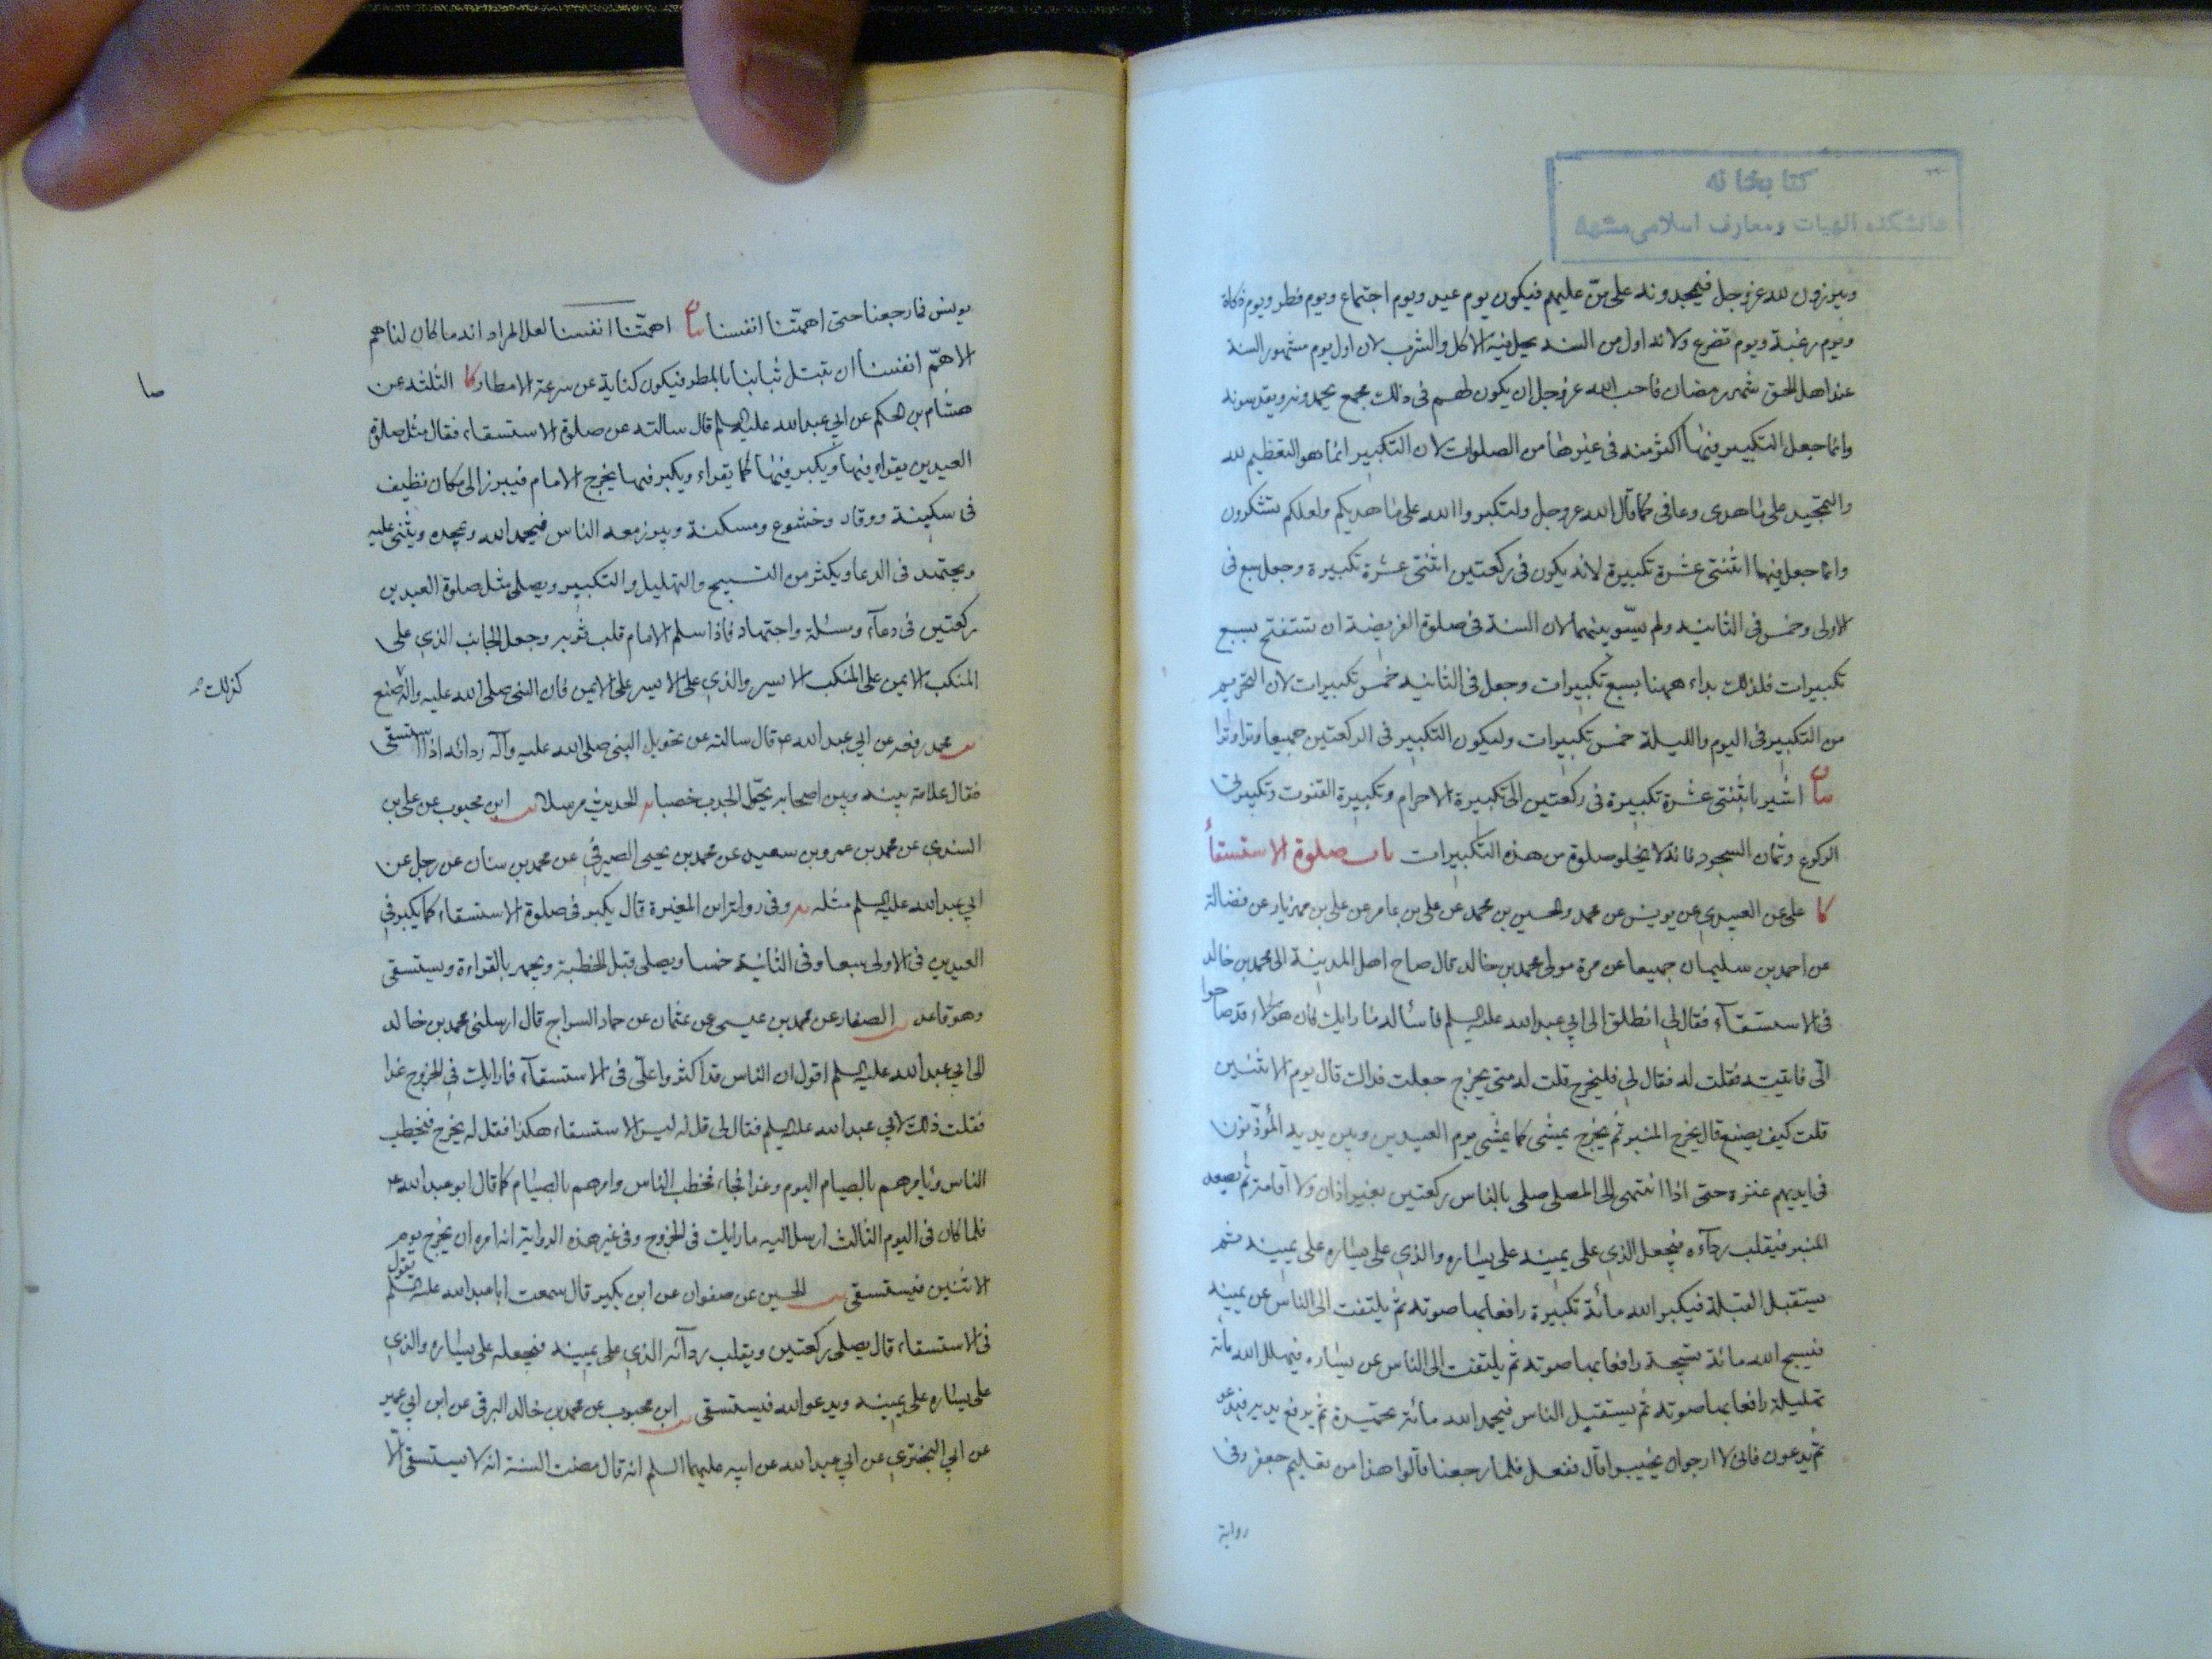 كتابخانه
دانشكده الهيات ومعارف اسلامى مشهد
ويبرزون لله عز وجل فيمجدونه على من عليهم فيكون يوم عيد ويوم اجتماع ويوم فطر ويوم زكاة
ويوم رغبة ويوم تضرع ولانه اول من السنه يحل فيه الاكل والشرب لان اول يوم شهور السنة
عند اهل الحق شهر رمضان فاحب الله عز وجل ان يكون لهم فى ذلك مجمع يحمدونه ويقدسونه
وانما جعل التكبير فيها اكثر منه فى غيرها من الصلوات لان التكبير انما هو التعظيم لله
والتمجيد على ما هدى وعافى كما قال الله عز وجل ولتكبروا الله على ما هديكم ولعلكم تشكرون
وانما جعل فيها اثنتى عشرة تكبيرة لانه يكون فى ركعتين اثنتى عشرة تكبيرة وجعل سبع فى
الاولى وخمس فى الثانيه ولم يسو بينهما لان السنة فى صلوة الفريضة ان تستفتح بسبع
تكبيرات فلذلك بداء ههنا بسبع تكبيرات وجعل فى الثانيه خمس تكبيرات لان التحريم
من التكبير فى اليوم والليلة خمس تكبيرات وليكون التكبير فى الركعتين جميعا وترا وترا
بيان اشير باثنتى عشرة تكبيرة فى ركعتين الى تكبيرة الاحرام وتكبيرة القنوت وتكبيرتى
الركوع وثمان السجود فانه لا يخلو صلوة من هذه التكبيرات باب صلوة الاستسقاء
كا على عن العبيدى عن يونس عن محمد والحسين بن محمد عن على بن عامر عن على بن مهزيار عن فضالة
عن احمد بن سليمان جميعا عن مرة مولى محمد بن خالد قال صاح اهل المدينة الى محمد بن خالد
فى الاستسقآء فقال لى انطلق الى ابى عبد الله عليه السلم فاساله ما رايك فان هؤلاء قد صاحوا
الى فاتيته فقلت له فقال لى فليخرج قلت له متى يخرج جعلت فداك قال يوم الاثنين
قلت كيف يصنع قال يخرج المنبر ثم يخرج يمشى كما يمشى يوم العيدين وبين يديه المؤذنون
فى ايديهم عنزة حتى اذا انتهى الى المصلى صلى بالناس ركعتين بغير اذان ولا اقامة ثم يصعد
المنبر فيقلب ردآءه فيجعل الذى على يمينه على يساره والذى على يساره على يمينه ثم
يستقبل القبلة فيكبر الله مائة تكبيرة رافعا بها صوته ثم يلتفت الى الناس عن يمينه
فيسبح الله مائة تسبيحة رافعا بها صوته ثم يلتفت الى الناس عن يساره فيهلل الله مأة
تهليلة رافعا بها صوته ثم يستقبل الناس فيحمد الله مائة تحميدة ثم يرفع يديه فيدعو
ثم يدعون فانى لا ارجوان يخيبوا قال ففعل فلما رجعنا قالوا هذا من تعليم جعفر وفى
رواية
يونس فما رجعنا حتى اهمتنا انفسنا بيان اهمتنا انفسنا لعل المراد انه ما كان لنا هم
الا هم انفسنا ان تبتل ثيابنا بالمطر فيكون كناية عن سرعة الامطار كا الثلثه عن
هشام بن الحكم عن ابى عبد الله عليه السلم قال سالته عن صلوة الاستسقاء فقال مثل صلوة
العيدين يقراء فيها ويكبر فيها كما يقراء ويكبر فيها يخرج الامام فيبرز الى مكان نظيف
فى سكينة ووقار وخشوع ومسكنة ويبرز معه الناس فيحمد الله ويمجده ويثنى عليه
ويجتهد فى الدعا ويكثر من التسبيح والتهليل والتكبير ويصلى مثل صلوة العيدين
ركعتين فى دعآء ومسئلة واجتهاد فاذا سلم الامام قلب ثوبه وجعل الجانب الذى على
المنكب الايمن على المنكب الايسر والذى على الايسر على الايمن فان النبى صلى الله عليه واله صنع
كذلك
محمد رفعه عن ابى عبد الله ع قال سالته عن تحويل النبى صلى الله عليه وآله ردائه اذا استسقى
فقال علامة بينه وبين اصحابه يحول الجدب خصبا الحديث مرسلا ابن محبوب عن على بن
السندى عن محمد بن عمرو بن سعيد عن محمد بن يحيى الصيرفى عن محمد بن سنان عن رجل عن
ابى عبد الله عليه السلم مثله وفى رواية ابن المغيرة قال يكبر فى صلوة الاستسقاء كما يكبر فى
العيدين فى الاولى سبعا وفى الثانية خمسا ويصلى قبل الخطبة ويجهر بالقراءة ويستسقى
وهو قاعد الصفار عن محمد بن عيسى عن عثمان عن حماد السراج قال ارسلنى محمد بن خالد
الى ابى عبد الله عليه السلم اقول ان الناس قد اكثروا على فى الاستسقآء فما رايك فى الخروج غدا
فقلت ذلك لابى عبد الله عليه السلم فقال لى قل له ليس الاستسقاء هكذا فقل له يخرج فيخطب
الناس ويامرهم بالصيام اليوم وغدا فجاء فخطب الناس وامرهم بالصيام كما قال ابو عبد الله ع
فلما كان فى اليوم الثالث ارسل اليه ما رايك فى الخروج وفى غير هذه الرواية انه امره ان يخرج يوم
الاثنين فيستسقى الحسين عن صفوان عن ابن بكير قال سمعت ابا عبد الله عليه السلم يقول
فى الاستسقاء قال يصلى ركعتين ويقلب ردآئه الذى على يمينه فيجعله على يساره والذى
على يساره على يمينه ويدعو الله فيستسقى ابن محبوب عن محمد بن خالد البرقى عن ابن ابى عمير
عن ابى البخترى عن ابى عبد الله عن ابيه عليهما السلم انه قال مضت السنة انه لا يستسقى الا